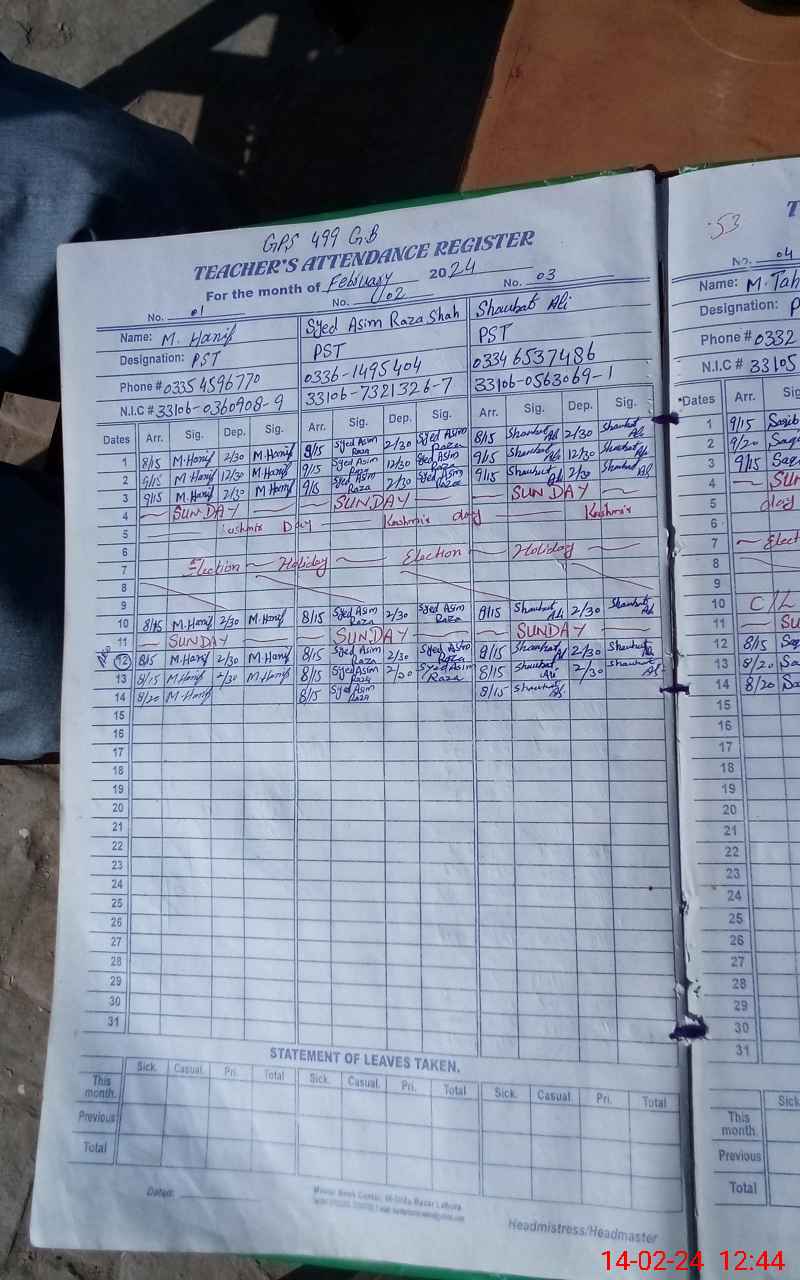 GPS 499 G.B
TEACHER'S ATTENDANCE REGISTER
For the month of February 2024
No. 01 No. 02 No. 03
Name: M. Hanif Syed Asim Raza Shah Shaukat Ali
Designation: PST PST PST
Phone # 0335 4596770 0336-1495404 0334 6537486
N.I.C # 33106-0360908-9 33106-7321326-7 33106-0563069-1
Dates Arr. Sig. Dep. Sig. Arr. Sig. Dep. Sig. Arr. Sig. Dep. Sig.
1 8/15 M.Hanif 2/30 M.Hanif 9/15 Syed Asim Raza 2/30 Syed Asim Raza 8/15 Shaukat Ali 2/30 Shaukat Ali
2 9/15 M.Hanif 12/30 M.Hanif 9/15 Syed Asim Raza 12/30 Syed Asim Raza 9/15 Shaukat Ali 12/30 Shaukat Ali
3 9/15 M.Hanif 2/30 M.Hanif 9/15 Syed Asim Raza 2/30 Syed Asim Raza 9/15 Shaukat Ali 2/30 Shaukat Ali
4 SUNDAY SUNDAY SUNDAY
5 Kashmir Day Kashmir day Kashmir
6
7 Election Holiday Election Holiday
8
9
10 8/15 M.Hanif 2/30 M.Hanif 8/15 Syed Asim Raza 2/30 Syed Asim Raza 9/15 Shaukat Ali 2/30 Shaukat Ali
11 SUNDAY SUNDAY SUNDAY
12 8/15 M.Hanif 2/30 M.Hanif 8/15 Syed Asim Raza 2/30 Syed Asim Raza 9/15 Shaukat Ali 2/30 Shaukat Ali
13 8/15 M.Hanif 2/30 M.Hanif 8/15 Syed Asim Raza 2/20 Syed Asim Raza 8/15 Shaukat Ali 2/30 Shaukat Ali
14 8/20 M.Hanif 8/15 Syed Asim Raza 8/15 Shaukat Ali
15
16
17
18
19
20
21
22
23
24
25
26
27
28
29
30
31
STATEMENT OF LEAVES TAKEN.
Sick. Casual. Pri. Total Sick. Casual. Pri. Total Sick. Casual. Pri. Total
This month.
Previous
Total
Dated:
Headmistress/Headmaster
53
No. 04
Name: M. Tah
Designation: P
Phone # 0332
N.I.C # 33105
Dates Arr. Sig
1 9/15
2 9/20
3 9/15
4 SUN
5 day
6
7 Elect
8
9
10 C/L
11 SU
12 8/15
13 8/20
14 8/20
15
16
17
18
19
20
21
22
23
24
25
26
27
28
29
30
31
Sick
This month.
Previous
Total
14-02-24 12:44